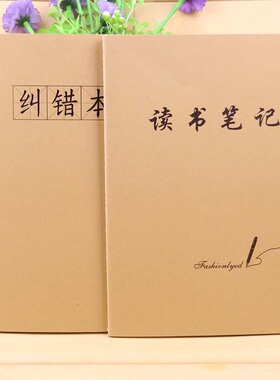 纠错本
读书笔记
Fashionlyed